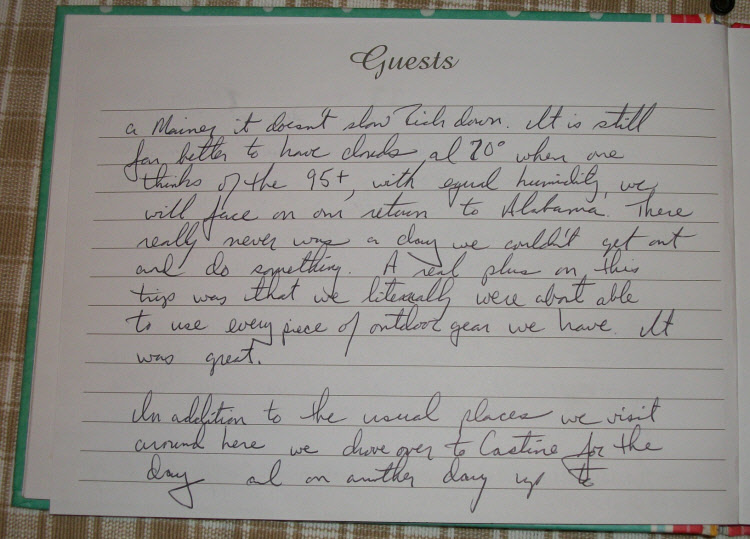 Guests
a Mainer it doesn't slow Rich down. It is still
far better to have clouds at 70° when one
thinks of the 95+, with equal humidity, we
will face on our return to Alabama. There
really never was a day we couldn't get out
and do something. A real plus on this
trip was that we literally were about able
to use every piece of outdoor gear we have. It
was great.
In addition to the usual places we visit
around here we drove over to Castine for the
day on another day up to